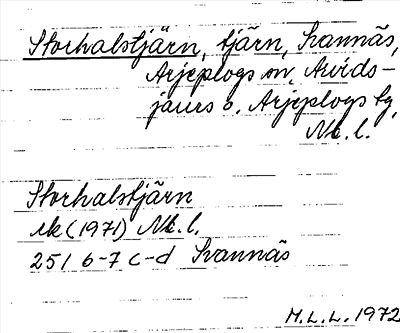 Storhalstjärn, tjärn, Svannäs,
Arjeplogs sn, Arvids-
jaurs o. Arjeplogs tg,
Nb. l.
Storhalstjärn
ek (1971) Nb. l.
25 I 6-7 c-d Svannäs
M. L. L. 1972